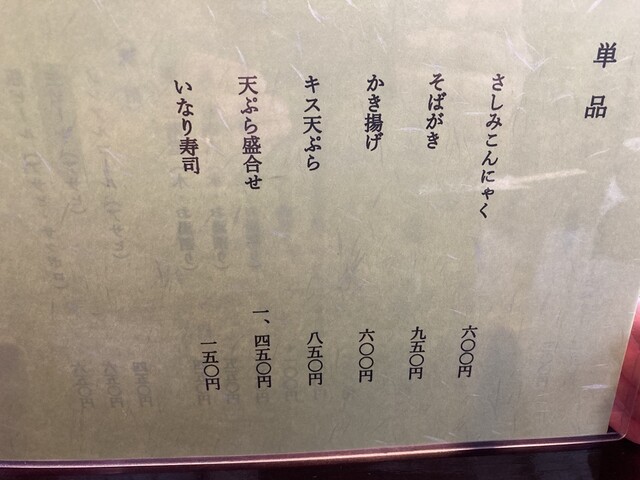 単品
さしみこんにゃく 六〇〇円
そばがき 九五〇円
かき揚げ 六〇〇円
キス天ぷら 八五〇円
天ぷら盛合せ 一、四五〇円
いなり寿司 一五〇円